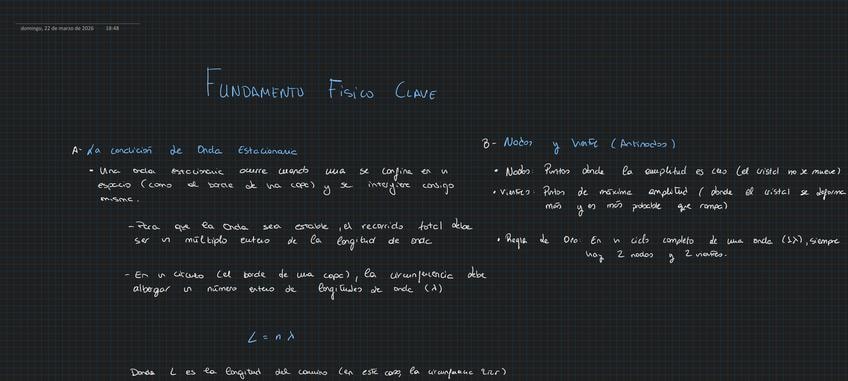 domingo, 22 de marzo de 2026 18:48
FUNDAMENTO FÍSICO CLAVE
A- La condición de Onda Estacionaria
• Una onda estacionaria ocurre cuando una se confina en un
espacio (como el borde de una copa) y se interfiere consigo
misma.
- Para que la Onda sea estable, el recorrido total debe
ser un múltiplo entero de la longitud de onda
- En un círculo (el borde de una copa), la circunferencia debe
albergar un número entero de longitudes de onda (λ)
L = n λ
Donde L es la longitud del camino (en este caso, la circunferencia 2πr)
B- Nodos y Vientre (Antinodos)
• Nodos: Puntos donde la amplitud es cero (el cristal no se mueve)
• Vientres: Puntos de máxima amplitud (donde el cristal se deforma
más y es más probable que rompa)
• Regla de Oro: En un ciclo completo de una onda (1λ), siempre
hay 2 nodos y 2 vientres.